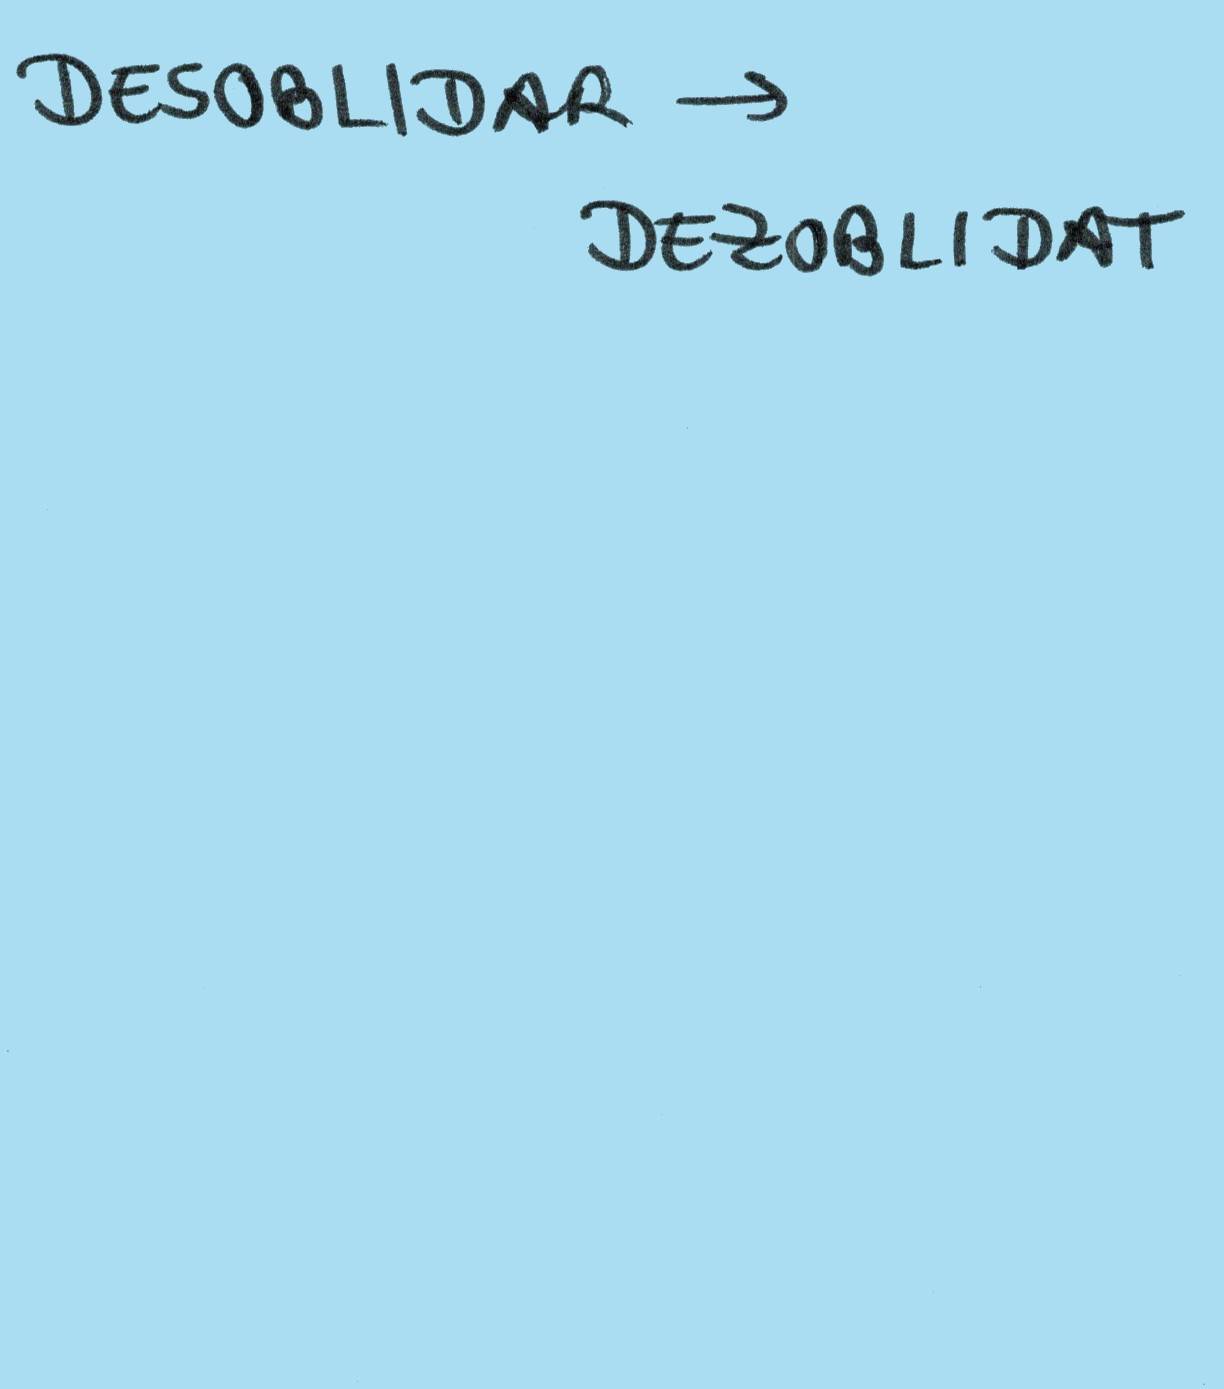 DESOBLIDAR →
DEZOBLIDAT